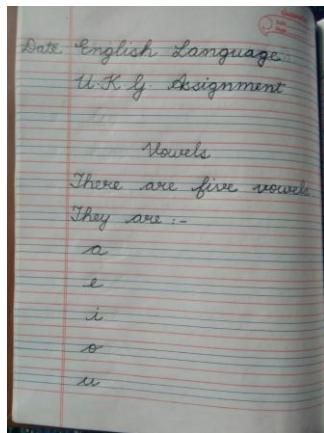 Date English Language
U.K.G. Assignment
Vowels
There are five vowels.
They are :-
a
e
i
o
u